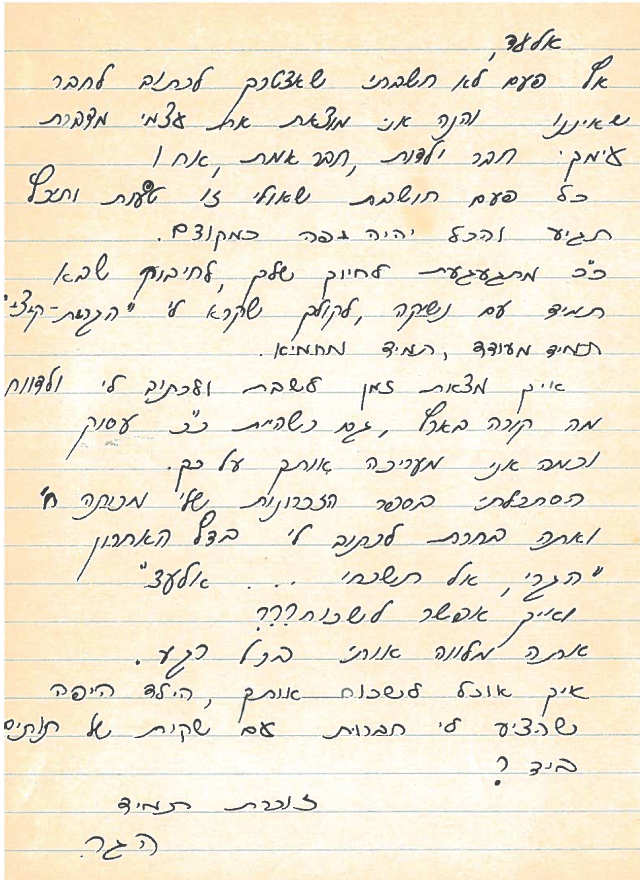 אלעד,
אף פעם לא חשבתי שאצטרך לכתוב לחבר
שאיננו והנה אני מוצאת את עצמי מדברת
עימך: חבר ילדות, חבר אמת, אח!
כל פעם חושבת שאולי זו טעות ותיכף
תגיע והכל יהיה יפה כמקודם.
כ"כ מתגעגעת לחיוך שלך, לחיבוק שבא
תמיד עם נשיקה, לקולך שקרא לי "הגרית-קוצי"
תמיד מעודד, תמיד מחמיא.
איך מצאת זמן לשבת ולכתוב לי ולדווח
מה קורה בארץ, גם כשהיית כ"כ עסוק
וכמה אני מעריכה אותך על כך.
הסתכלתי בספר הזכרונות שלי מכיתה ח'
ואתה בחרת לכתוב לי בדף האחרון
"הגרי, אל תשכחי ... אלעד"
ואיך אפשר לשכוח???
אתה מלווה אותי בכל רגע.
איך אוכל לשכוח אותך, הילד היפה
שהציע לי חברות עם שקית של תותים
ביד?
זוכרת תמיד
הגר.